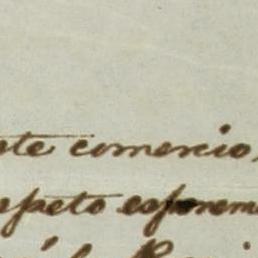 ste comercio,
speto esponem